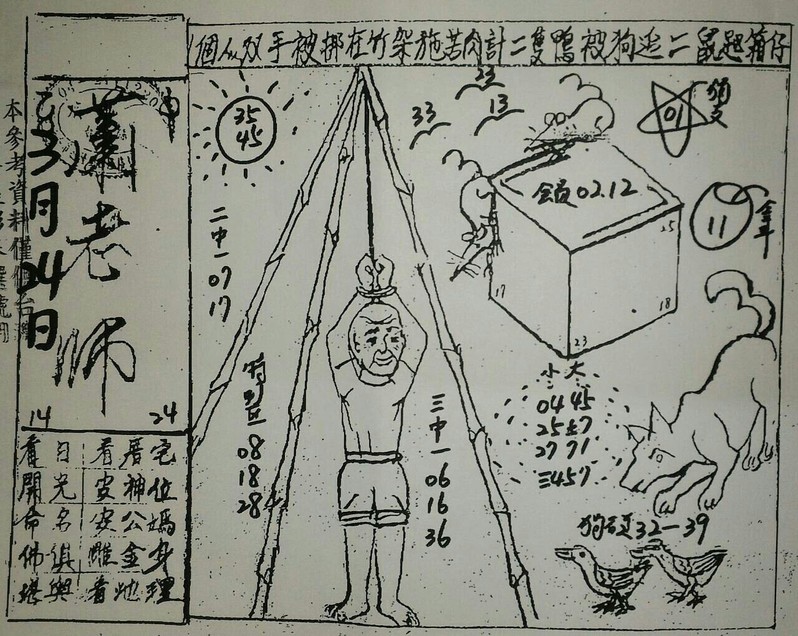 個人双手被挷在竹架施苦肉計二隻鴨被狗追二鼠起箱仔
蕭老師
3月04日
14
24
本參考資料僅供台灣
看厝宅
看安神位
安公媽
雕金身
看地理
看日
開光
命名
佛俱
塔與
35
45
23
33
13
01
二中一
07
17
特
08
18
28
三中一
06
16
36
会員02.12
25
17
18
23
11
小大
04 45
25±7
27 71
三457
32-39